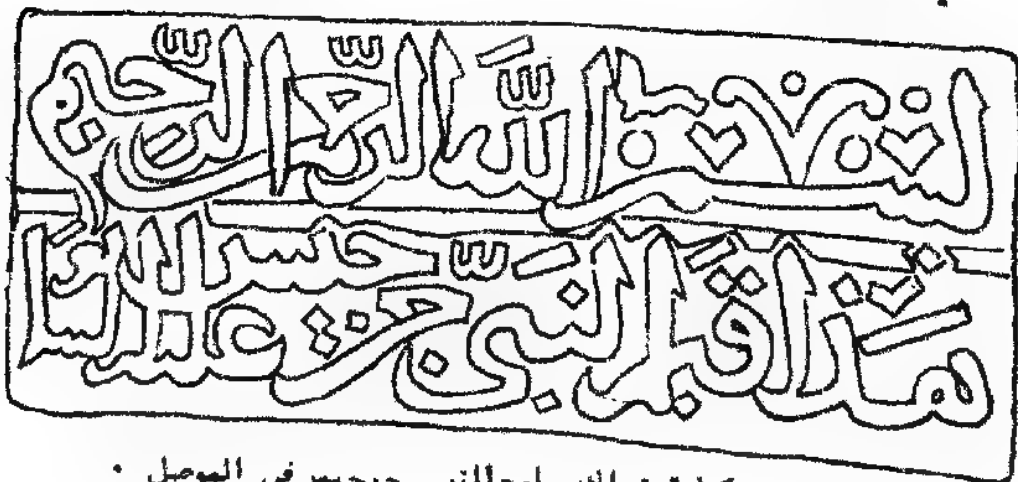 بسم الله الرحمن الرحيم
هذا قبر النبي جرجيس عليه السلام
جرجيس في الموصل .